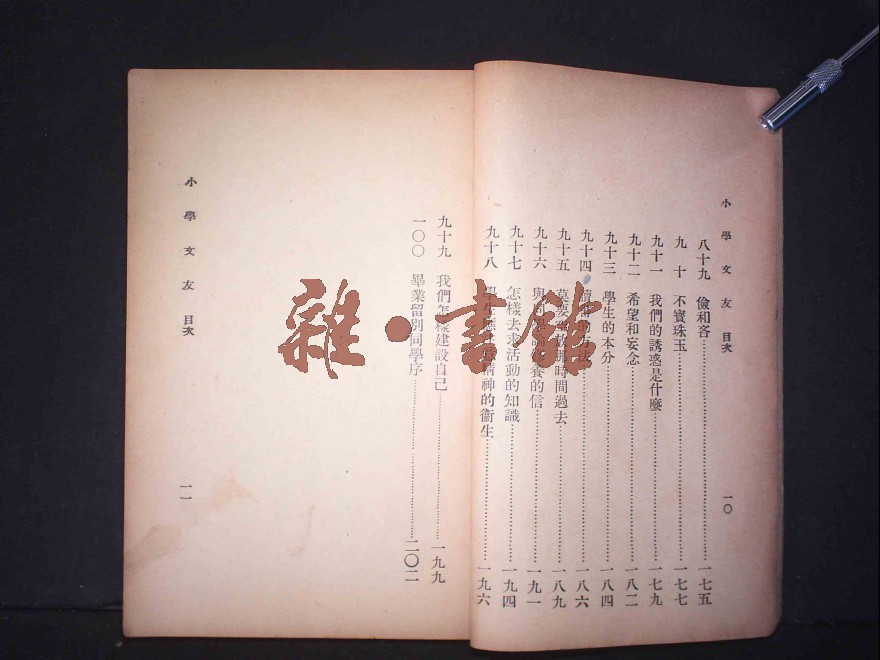 小學文友 目次
八十九 儉和吝……一七五
九十 不寶珠玉……一七七
九十一 我們的誘惑是什麼……一七九
九十二 希望和妄念……一八二
九十三 學生的本分……一八四
九十四 讀書的方法……一八六
九十五 莫要 放那時間過去……一八九
九十六 與同 論 養的信……一九一
九十七 怎樣去求活動的知識……一九四
九十八 學生應 精神的衞生……一九六
一〇
九十九 我們怎樣建設自己……一九九
一〇〇 畢業留別同學序……二〇二
小學文友 目次
一一
雜·書館